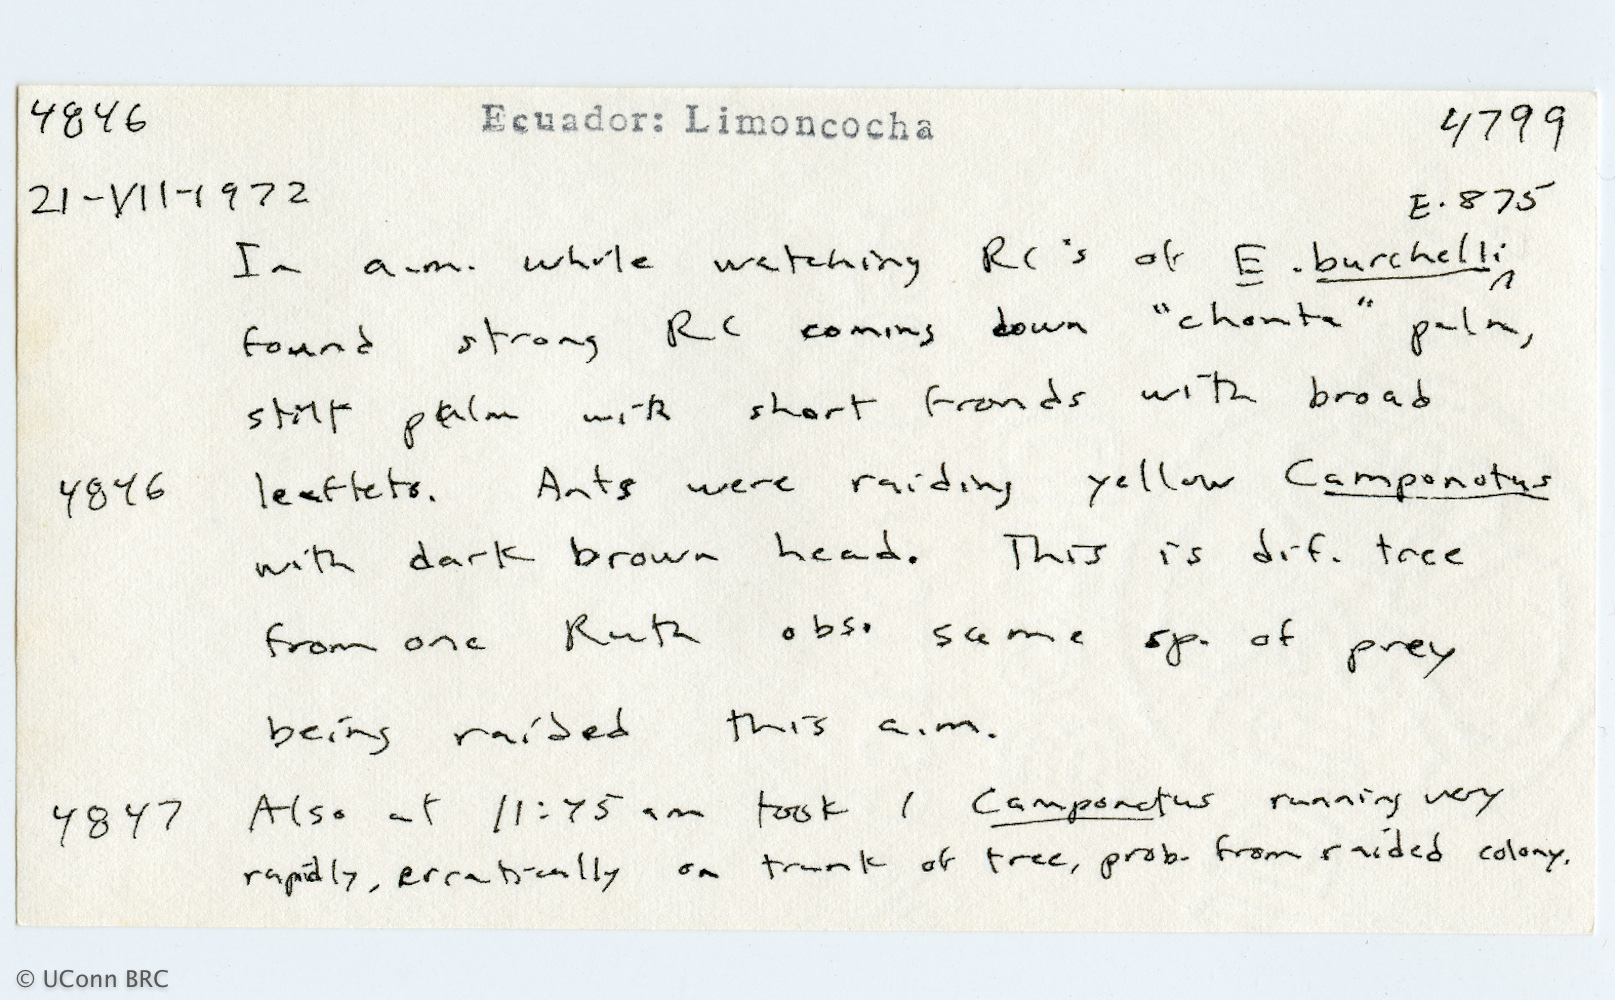 4846 Ecuador: Limoncocha 4799
21-VII-1972 E-875
In a.m. while watching RC's of E. burchelli
found strong RC coming down "chonta" palm,
stilt palm with short fronds with broad
4846 leaflets. Ants were raiding yellow Camponotus
with dark brown head. This is dif. tree
from one Ruth obs. same sp. of prey
being raided this a.m.
4847 Also at 11:45 am took 1 Camponotus running very
rapidly, erratically on trunk of tree, prob. from raided colony.
© UConn BRC